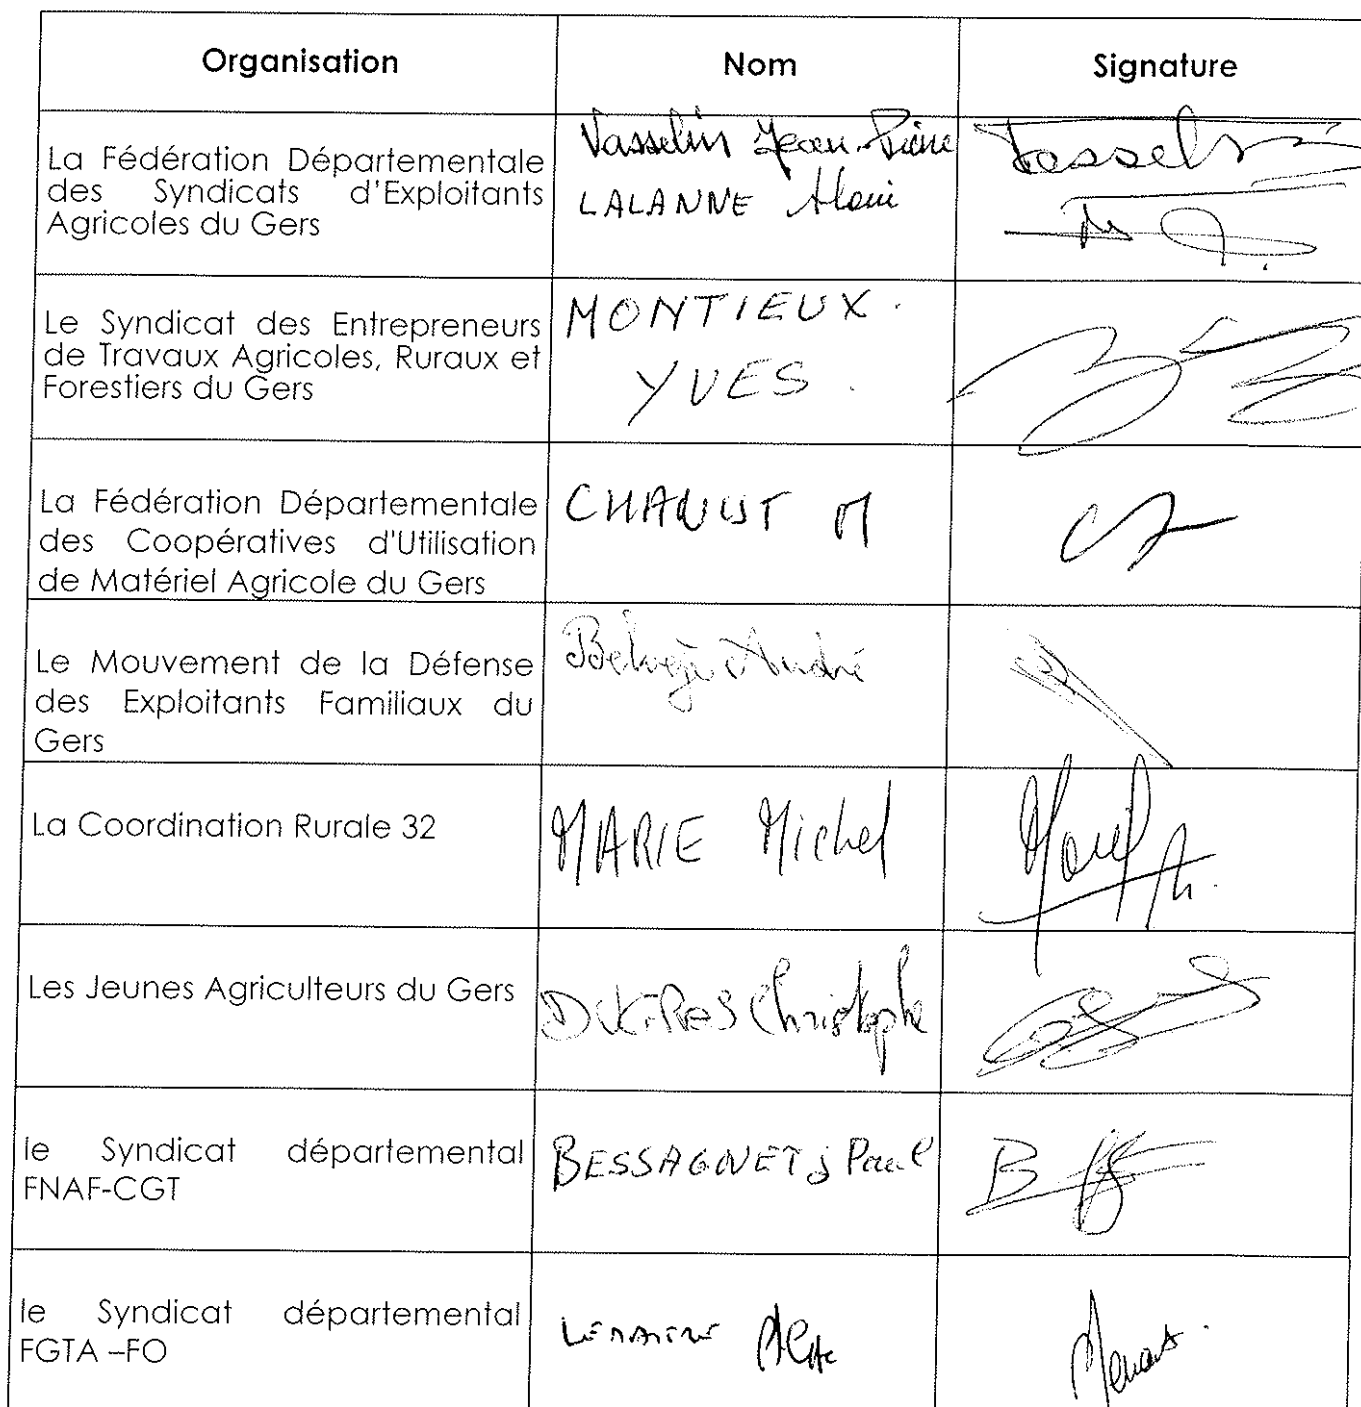 Organisation Nom Signature
La Fédération Départementale
des Syndicats d'Exploitants
Agricoles du Gers
Vasselin Jean-Pierre
LALANNE Alain
Vasselin
Le Syndicat des Entrepreneurs
de Travaux Agricoles, Ruraux et
Forestiers du Gers
MONTIEUX.
YVES.
La Fédération Départementale
des Coopératives d'Utilisation
de Matériel Agricole du Gers
CHANUT M
Le Mouvement de la Défense
des Exploitants Familiaux du
Gers
André
La Coordination Rurale 32
MARIE Michel
Les Jeunes Agriculteurs du Gers
Christophe
le Syndicat départemental
FNAF-CGT
BESSAGNET J Paul
B
le Syndicat départemental
FGTA –FO